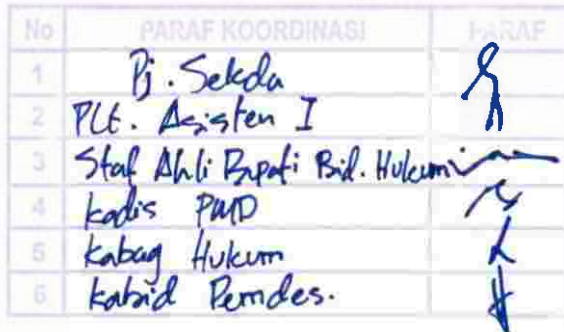 No PARAF KOORDINASI PARAF
1 Pj. Sekda
2 Plt. Asisten I
3 Staf Ahli Bupati Bid. Hukum
4 Kadis PMD
5 Kabag Hukum
6 Kabid Pemdes.